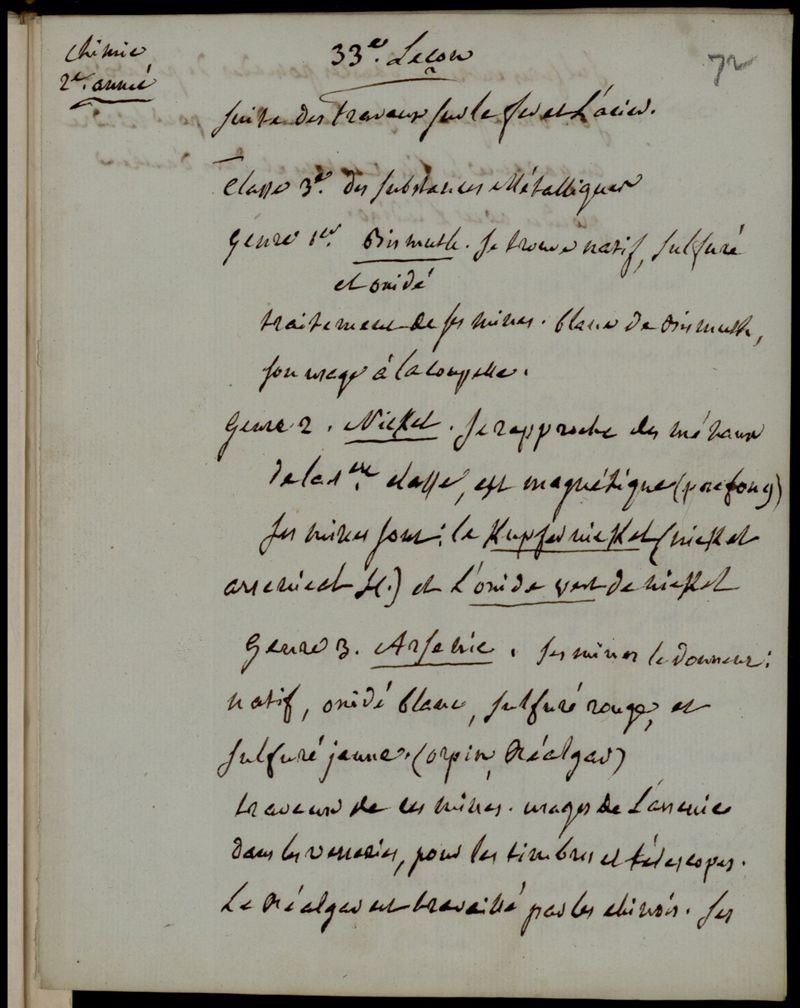 Chimie
2e. année
33e. Leçon
72
suite des travaux sur le fer et l'acier.
Classe 3e. des substances Métalliques
Genre 1er. Bismuth. se trouve natif, sulfuré
et oxidé
traitement de ses mines. blanc de Bismuth,
son usage à la coupelle.
Genre 2. Nickel. se rapproche des métaux
de la 1ere classe, est magnétique
ses mines sont: le Kupfernickel (nickel
arsenical &c.) et l'oxide vert de nickel
Genre 3. Arsenic. ses mines le donnent:
natif, oxidé blanc, sulfuré rouge, et
sulfuré jaune. (orpin, Réalgar)
travaux de ces mines. usages de l'arsenic
dans les verreries, pour les timbres et télescopes.
Le Réalgar est travaillé par les chinois. ses